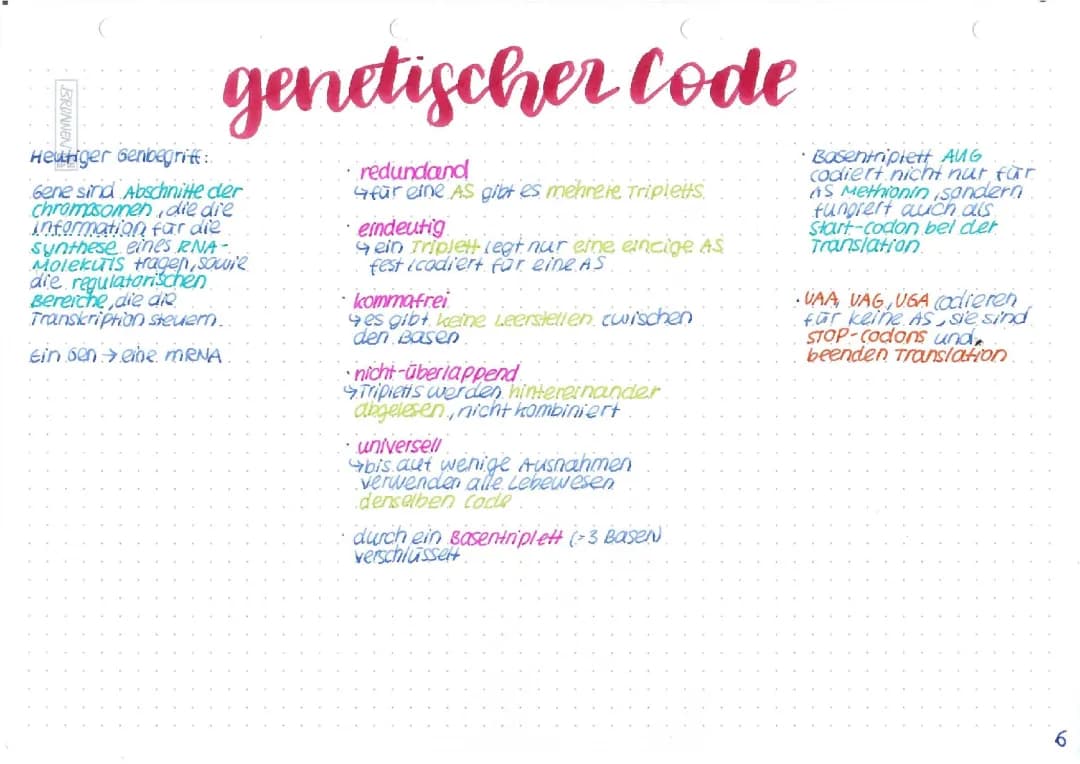 genetischer Code
BRUNNEN
Heutiger Genbegriff:
Gene sind Abschnitte der
Chromosomen, die die
Information für die
Synthese eines RNA-
Moleküls tragen, sowie
die regulatorischen
Bereiche, die die
Transkription steuern.
Ein Gen → eine mRNA
· redundand
↳ für eine AS gibt es mehrere Tripletts
· eindeutig
↳ ein Triplett legt nur eine einzige AS
fest / codiert für eine AS
· kommafrei
↳ es gibt keine Leerstellen zwischen
den Basen
· nicht-überlappend
↳ Tripletts werden hintereinander
abgelesen, nicht kombiniert
· universell
↳ bis auf wenige Ausnahmen
verwenden alle Lebewesen
denselben Code
· durch ein Basentriplett (=3 Basen)
verschlüsselt
· Basentriplett AUG
codiert nicht nur für
AS Methionin, sondern
fungiert auch als
Start-Codon bei der
Translation
· UAA, UAG, UGA codieren
für keine AS, sie sind
STOP-Codons und
beenden Translation
6